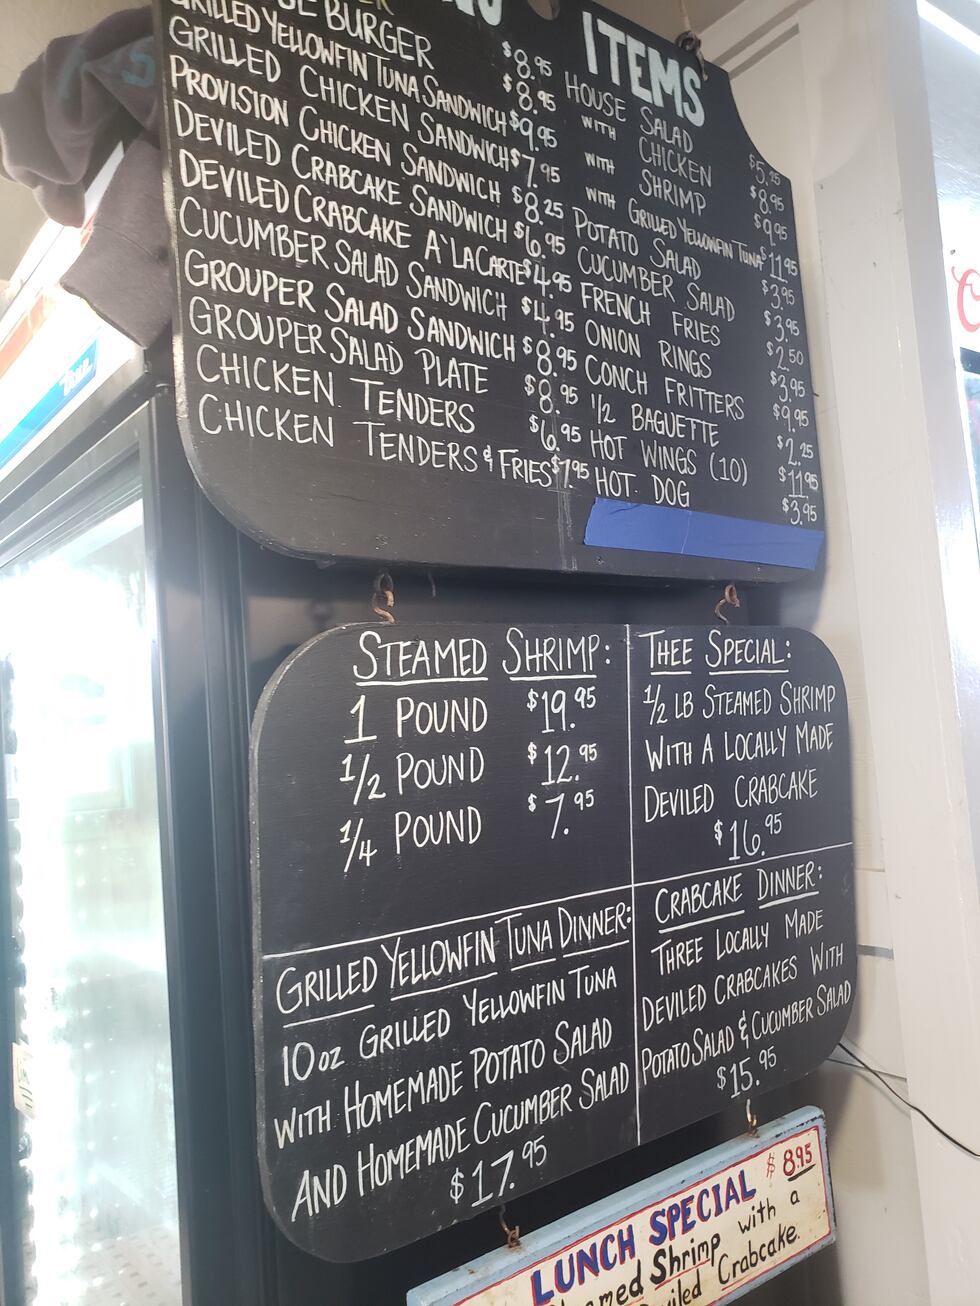 ITEMS
$8.95
BURGER $8.95
GRILLED YELLOWFIN TUNA SANDWICH $9.95
GRILLED CHICKEN SANDWICH $7.95
PROVISION CHICKEN SANDWICH $8.25
DEVILED CRABCAKE SANDWICH $6.95
DEVILED CRABCAKE A'LA CARTE $4.95
CUCUMBER SALAD SANDWICH $4.95
GROUPER SALAD SANDWICH $8.95
GROUPER SALAD PLATE $8.95
CHICKEN TENDERS $6.95
CHICKEN TENDERS & FRIES $7.95
HOUSE SALAD $5.25
WITH CHICKEN $8.95
WITH SHRIMP $9.95
WITH GRILLED YELLOWFIN TUNA $11.95
POTATO SALAD $3.95
CUCUMBER SALAD $3.95
FRENCH FRIES $2.50
ONION RINGS $3.95
CONCH FRITTERS $9.95
1/2 BAGUETTE $2.25
HOT WINGS (10) $11.95
HOT DOG $3.95
STEAMED SHRIMP:
1 POUND $19.95
1/2 POUND $12.95
1/4 POUND $7.95
THEE SPECIAL:
1/2 LB STEAMED SHRIMP
WITH A LOCALLY MADE
DEVILED CRABCAKE
$16.95
GRILLED YELLOWFIN TUNA DINNER:
10 OZ GRILLED YELLOWFIN TUNA
WITH HOMEMADE POTATO SALAD
AND HOMEMADE CUCUMBER SALAD
$17.95
CRABCAKE DINNER:
THREE LOCALLY MADE
DEVILED CRABCAKES WITH
POTATO SALAD & CUCUMBER SALAD
$15.95
LUNCH SPECIAL $8.95
Shrimp with a
Crabcake.